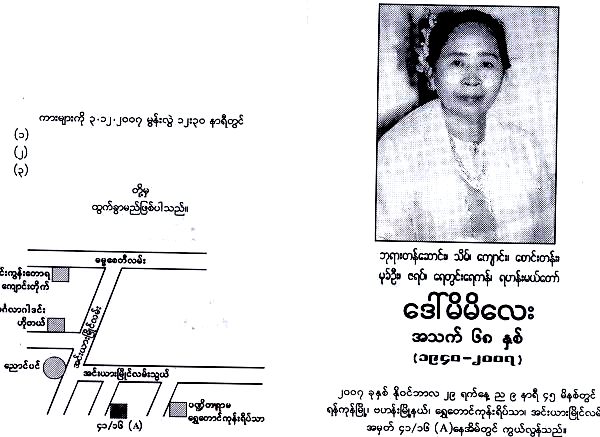 ကားများကို ၃.၁၂.၂၀၀၇ မွန်းလွဲ ၁၂း၃၀ နာရီတွင်
(၁)
(၂)
(၃)
တို့မှ
ထွက်ခွာမည်ဖြစ်ပါသည်။
ဓမ္မစေတီလမ်း
ကျောင်းတိုက်
ဟိုတယ်
အင်းယားမြိုင်လမ်း
ညောင်ပင်
အင်းယားမြိုင်လမ်းသွယ်
ပဏ္ဍိတာရာမ
ရွှေတောင်ကုန်းရိပ်သာ
၄၁/၁၆ (A)
ဘုရားတန်ဆောင်း၊ သိမ်၊ ကျောင်း၊ စောင်းတန်း၊
မုခ်ဦး၊ ဇရပ်၊ ရေတွင်းရေကန်၊ ရဟန်းမယ်တော်
ဒေါ်မိမိလေး
အသက် ၆၈ နှစ်
(၁၉၄၀-၂၀၀၇)
၂၀၀၇ ခုနှစ် နိုဝင်ဘာလ ၂၉ ရက်နေ့ ည ၉ နာရီ ၄၅ မိနစ်တွင်
ရန်ကုန်မြို့၊ ဗဟန်းမြို့နယ်၊ ရွှေတောင်ကုန်းရိပ်သာ၊ အင်းယားမြိုင်လမ်း
အမှတ် ၄၁/၁၆ (A) နေအိမ်တွင် ကွယ်လွန်သည်။